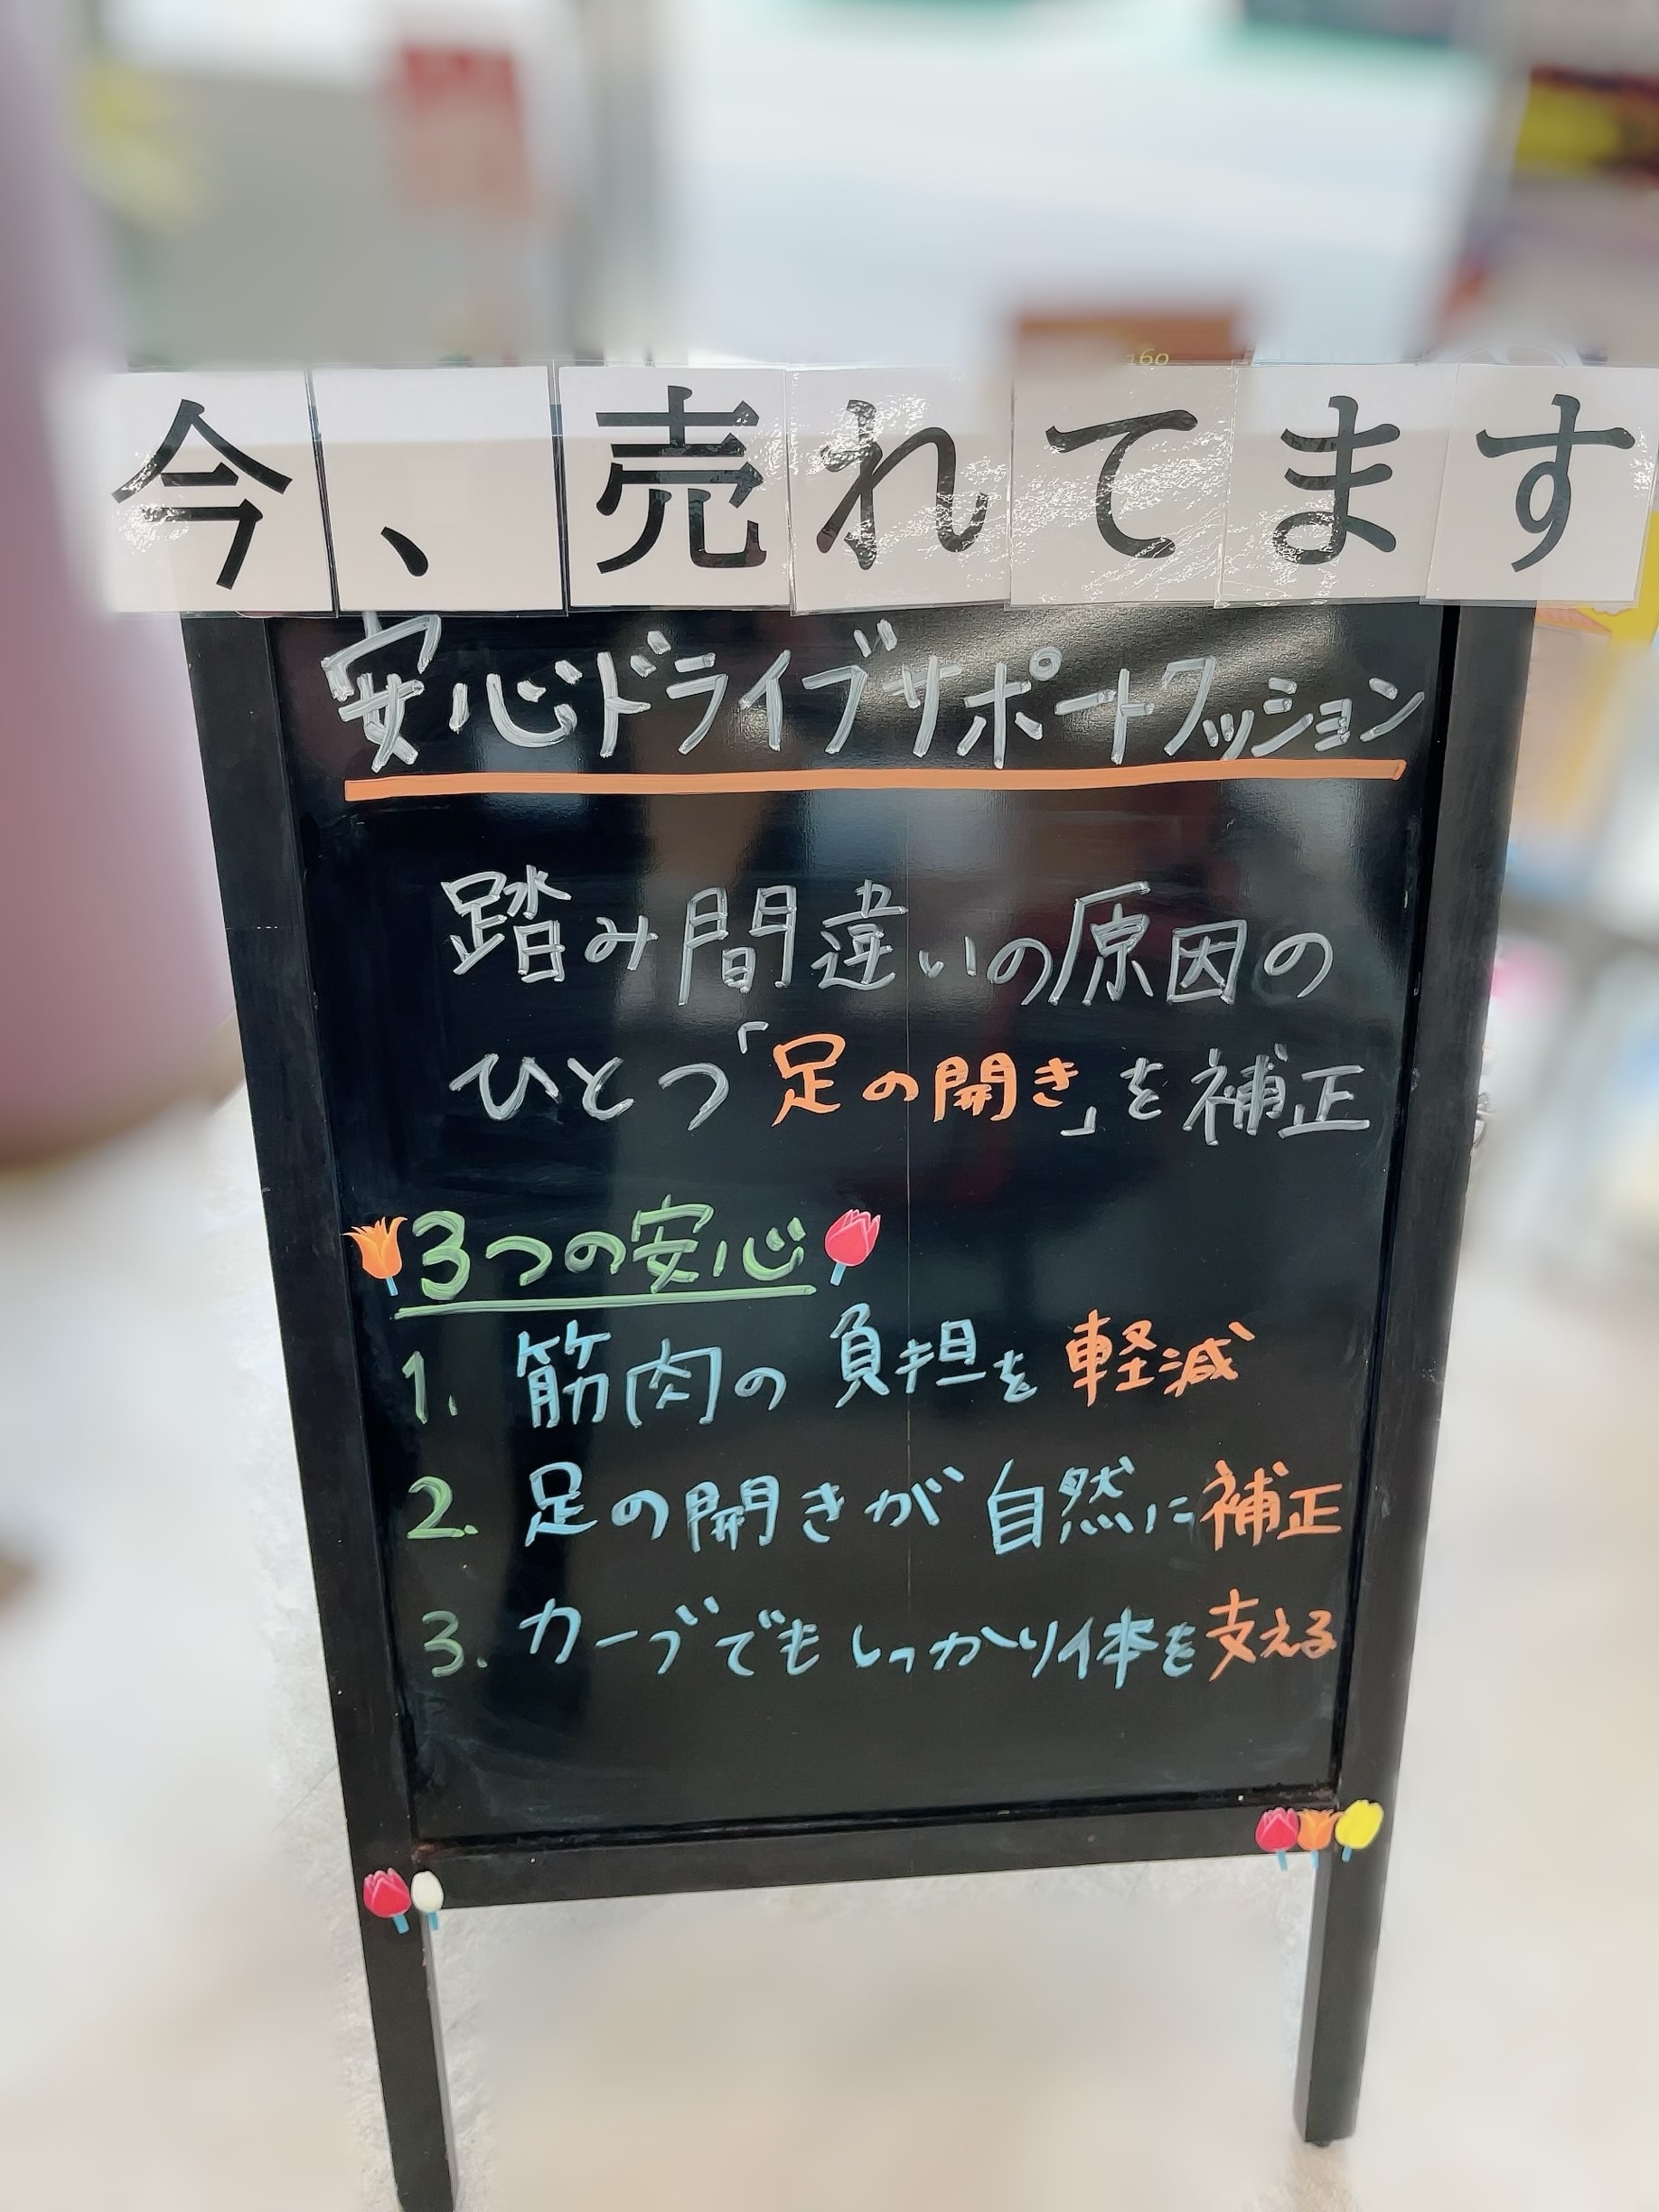 今、売れてます
安心ドライブサポートクッション
踏み間違いの原因の
ひとつ「足の開き」を補正
3つの安心
1. 筋肉の負担を軽減
2. 足の開きが自然に補正
3. カーブでもしっかり体を支える